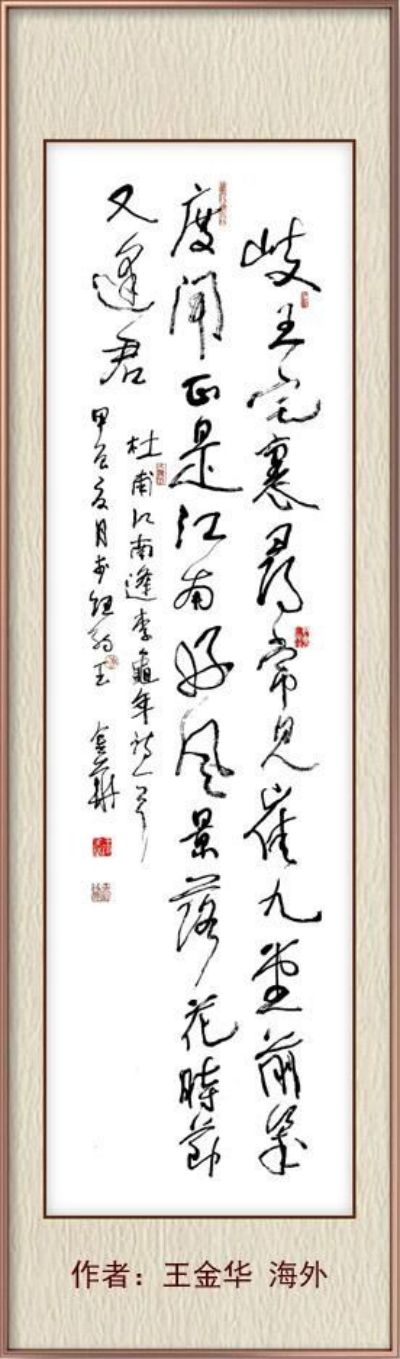 岐王宅裏尋常見崔九堂前幾
度聞正是江南好風景落花時節
又逢君
杜甫江南逢李龜年詩一首
甲辰夏月书纽约王金華
作者：王金华 海外